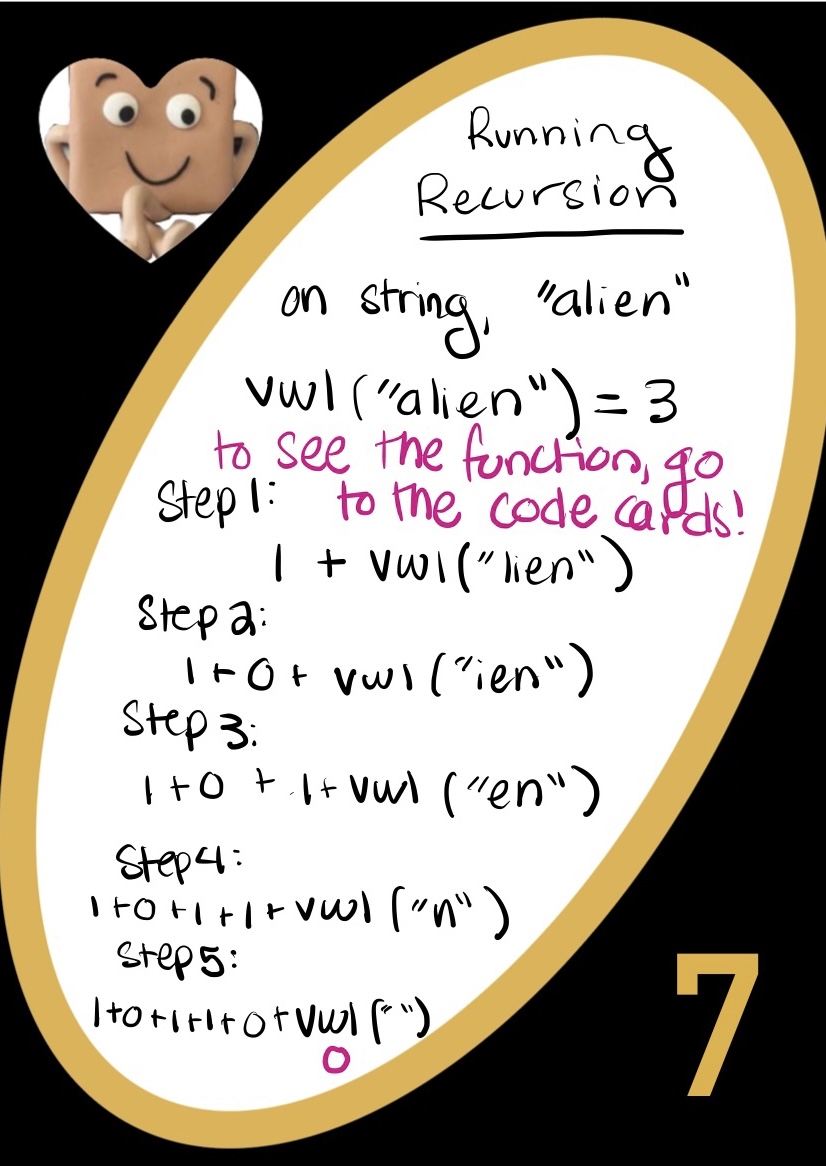 Running
Recursion
on string, "alien"
vwl("alien") = 3
to see the function, go
to the code cards!
Step 1:
1 + vwl("lien")
Step 2:
1+0+ vwl("ien")
Step 3:
1+0 + 1+ vwl ("en")
Step 4:
1+0+1+1+vwl ("n")
Step 5:
1+0+1+1+0+vwl(" ")
0
7